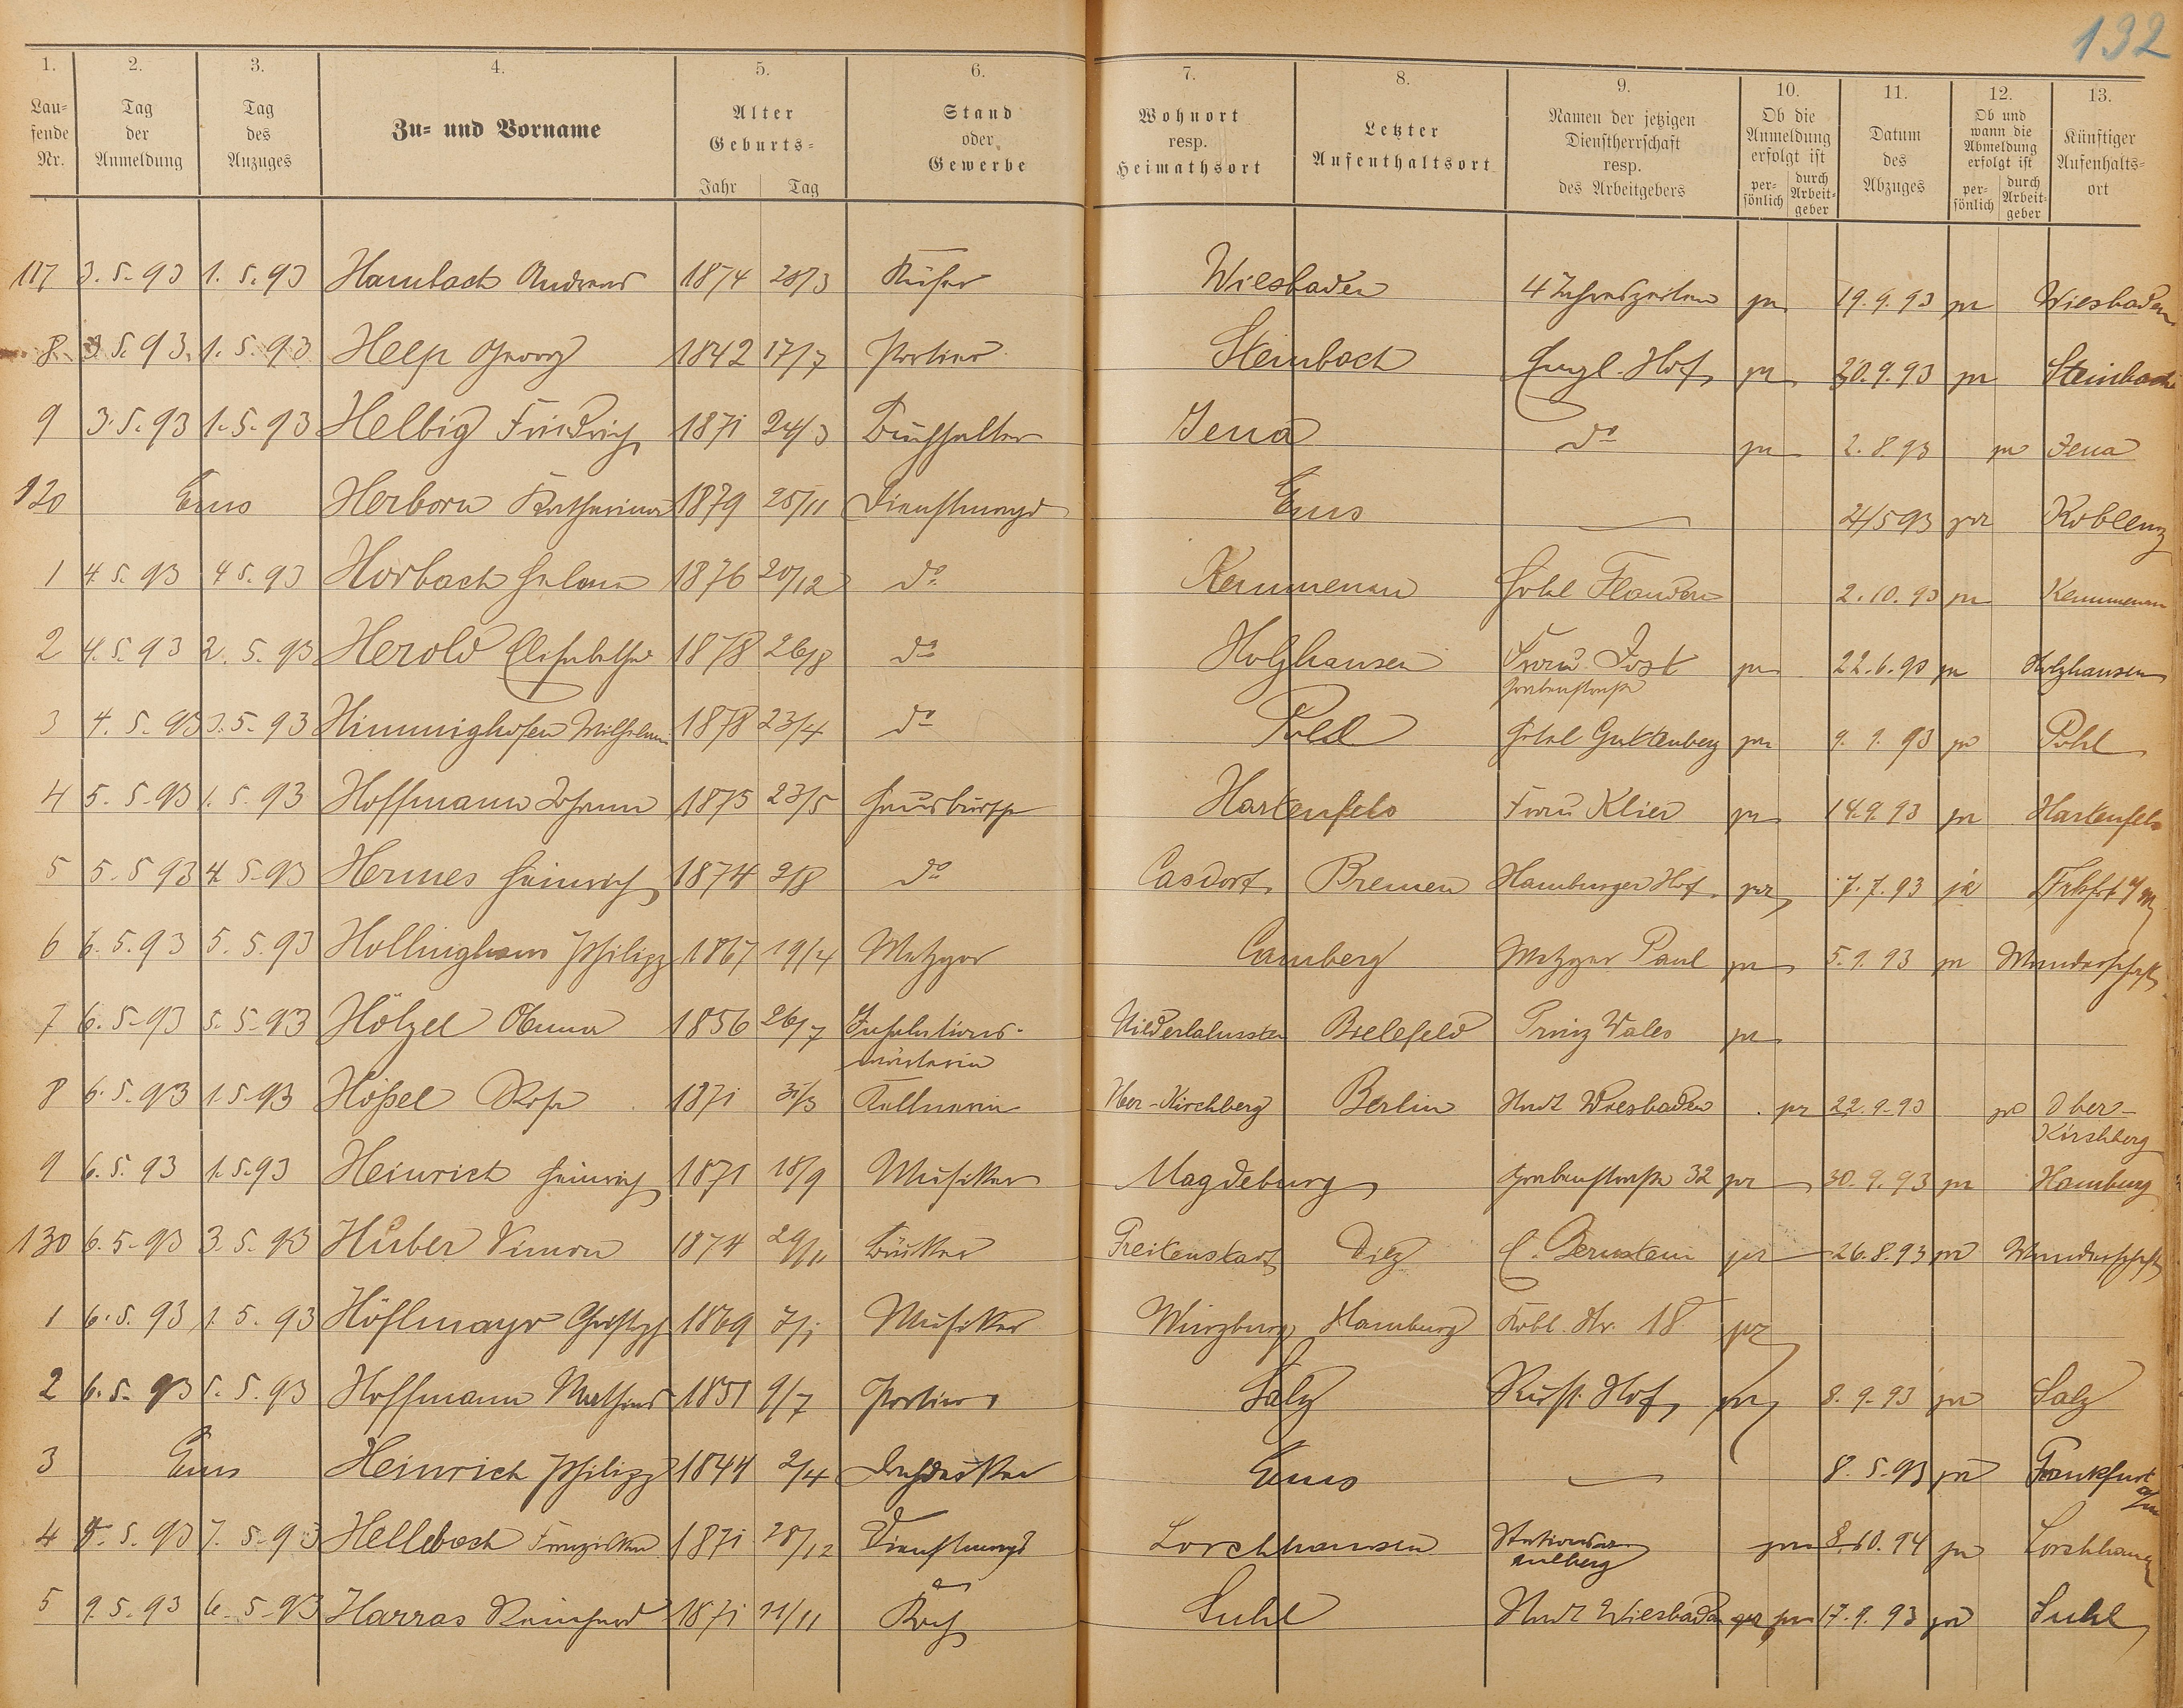 132
1. 2. 3. 4. 5. 6. 7. 8. 9. 10. 11. 12. 13.
Laufende Nr. Tag der Anmeldung Tag des Anzuges Zu- und Vorname Alter Geburts- Jahr Tag Stand oder Gewerbe Wohnort resp. Heimathsort Letzter Aufenthaltsort Namen der jetzigen Dienstherrschaft resp. des Arbeitgebers Ob die Anmeldung erfolgt ist persönlich durch Arbeitgeber Datum des Abzuges Ob und wann die Abmeldung erfolgt ist persönlich durch Arbeitgeber Künftiger Aufenhaltsort
117 3.5.93 1.5.93 Hambach Andreas 1874 28/3 Küfer Wiesbaden 4 Jahreszeiten pr 19.9.93 pr Wiesbaden
8 3.5.93. 1.5.93 Help Georg 1842 17/7 Portier Steinbach Engl. Hof pr 20.9.93 pr Steinbach
9 3.5.93 1.5.93 Helbig Friedrich 1871 24/3 Buchhalter Jena do pr 2.8.93 pr Jena
120 Ems Herborn Katharina 1879 25/11 Dienstmagd Ems — 4/5 93 pr Koblenz
1 4.5.93 4 5.93 Horbach Helene 1876 20/12 do Kemmenau Hotel Flandre 2.10.93 pr Kemmenau
2 4.5.93 2.5.93 Herold Elisabethe 1878 26/8 do Holzhausen Frau Jost pr 22.6.93 pr Holzhausen
Grabenstraße
3 4.5.93 3.5.93 Himmighofen Wilhelmine 1878 23/4 do Pohl Hotel Guttenberg pr 9.9.93 pr Pohl
4 5.5.93 1.5.93 Hoffmann Johann 1875 23/5 Hausbursche Hartenfels Frau Klier pr 14.9.93 pr Hartenfels
5 5.5 93 4.5.93 Hermes Heinrich 1874 2/8 do Casdorf Bremen Hamburger Hof pr 7.7.93 pr Frkfrt a/M
6 6.5.93 5.5.93 Hollinghaus Philipp 1867 19/4 Metzger Camberg Metzger Paul pr 5.9.93 pr Wanderschaft
7 6.5.93 5.5.93 Hölzel Anna 1856 26/7 Inhalations- Niederlahnstein Bielefeld Prinz Wales pr
wärterin
8 6.5.93 1.5.93 Hößel Rosa 1871 31/3 Kellnerin Ober-Kirchberg Berlin Stadt Wiesbaden pr 22.9.93 pr Ober-
Kirchberg
9 6.5.93 1.5.93 Heinrich Heinrich 1871 18/9 Musiker Magdeburg Grabenstraße 32 pr 30.9.93 pr Hamburg
130 6.5.93 3.5.93 Huber Simon 1874 29/11 Bäcker Diez C. Bernstein pr 26.8.93 pr Wanderschaft
1 6.5.93 1.5.93 Höflmayr Christoph 1869 7/1 Musiker Würzburg Hamburg Kobl. Str. 18 pr
2 6.5.93 5.5.93 Hoffmann Mathias 1851 9/7 Portier Salz Russ. Hof pr 8.9.93 pr Salz
3 Ems Heinrich Philipp 1844 2/4 Dachdecker Ems — 8.5.93 pr Frankfurt
a/m
4 8.5.93 7.5.93 Hellebach Franziska 1871 28/12 Dienstmagd Lorchhausen pr 8.10.94 pr Lorchhausen
5 9.5.93 6.5.93 Harras Reinhard 1871 11/11 Koch Suhl Stadt Wiesbaden pr pr 17.9.93 pr Suhl